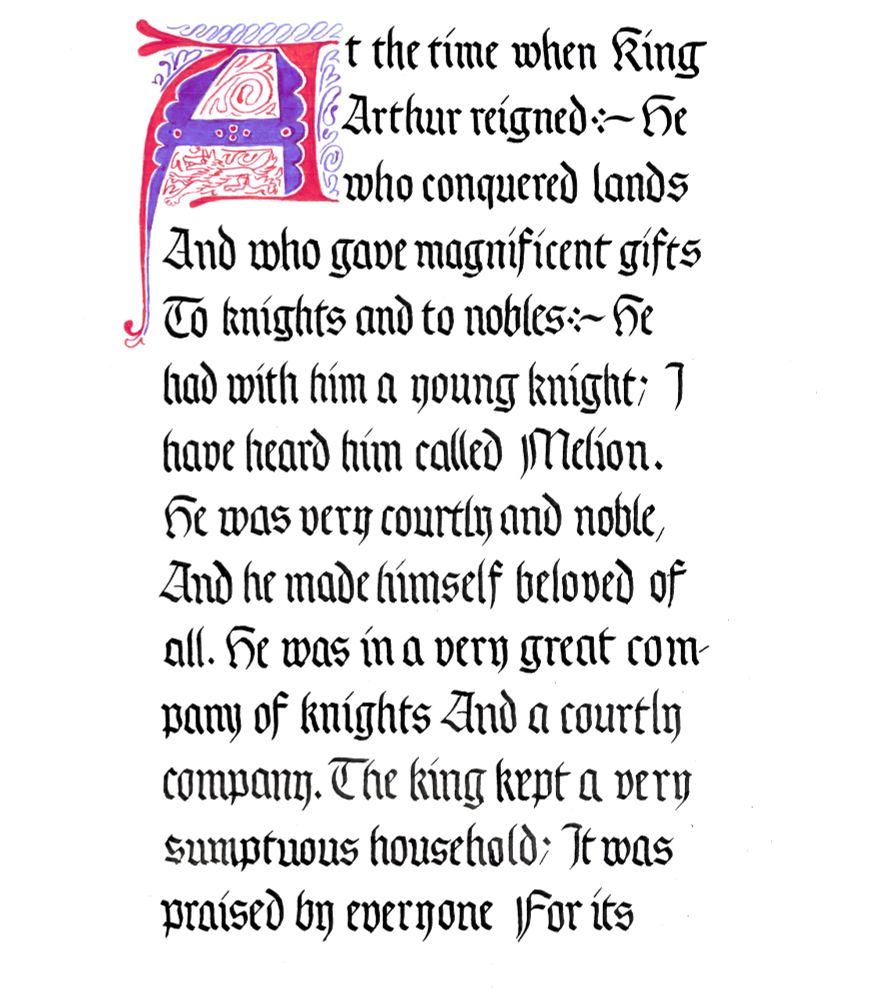 At the time when King
Arthur reigned:~ He
who conquered lands
And who gave magnificent gifts
To knights and to nobles:~ He
had with him a young knight; I
have heard him called Melion.
He was very courtly and noble,
And he made himself beloved of
all. He was in a very great com-
pany of knights And a courtly
company. The king kept a very
sumptuous household; It was
praised by everyone For its